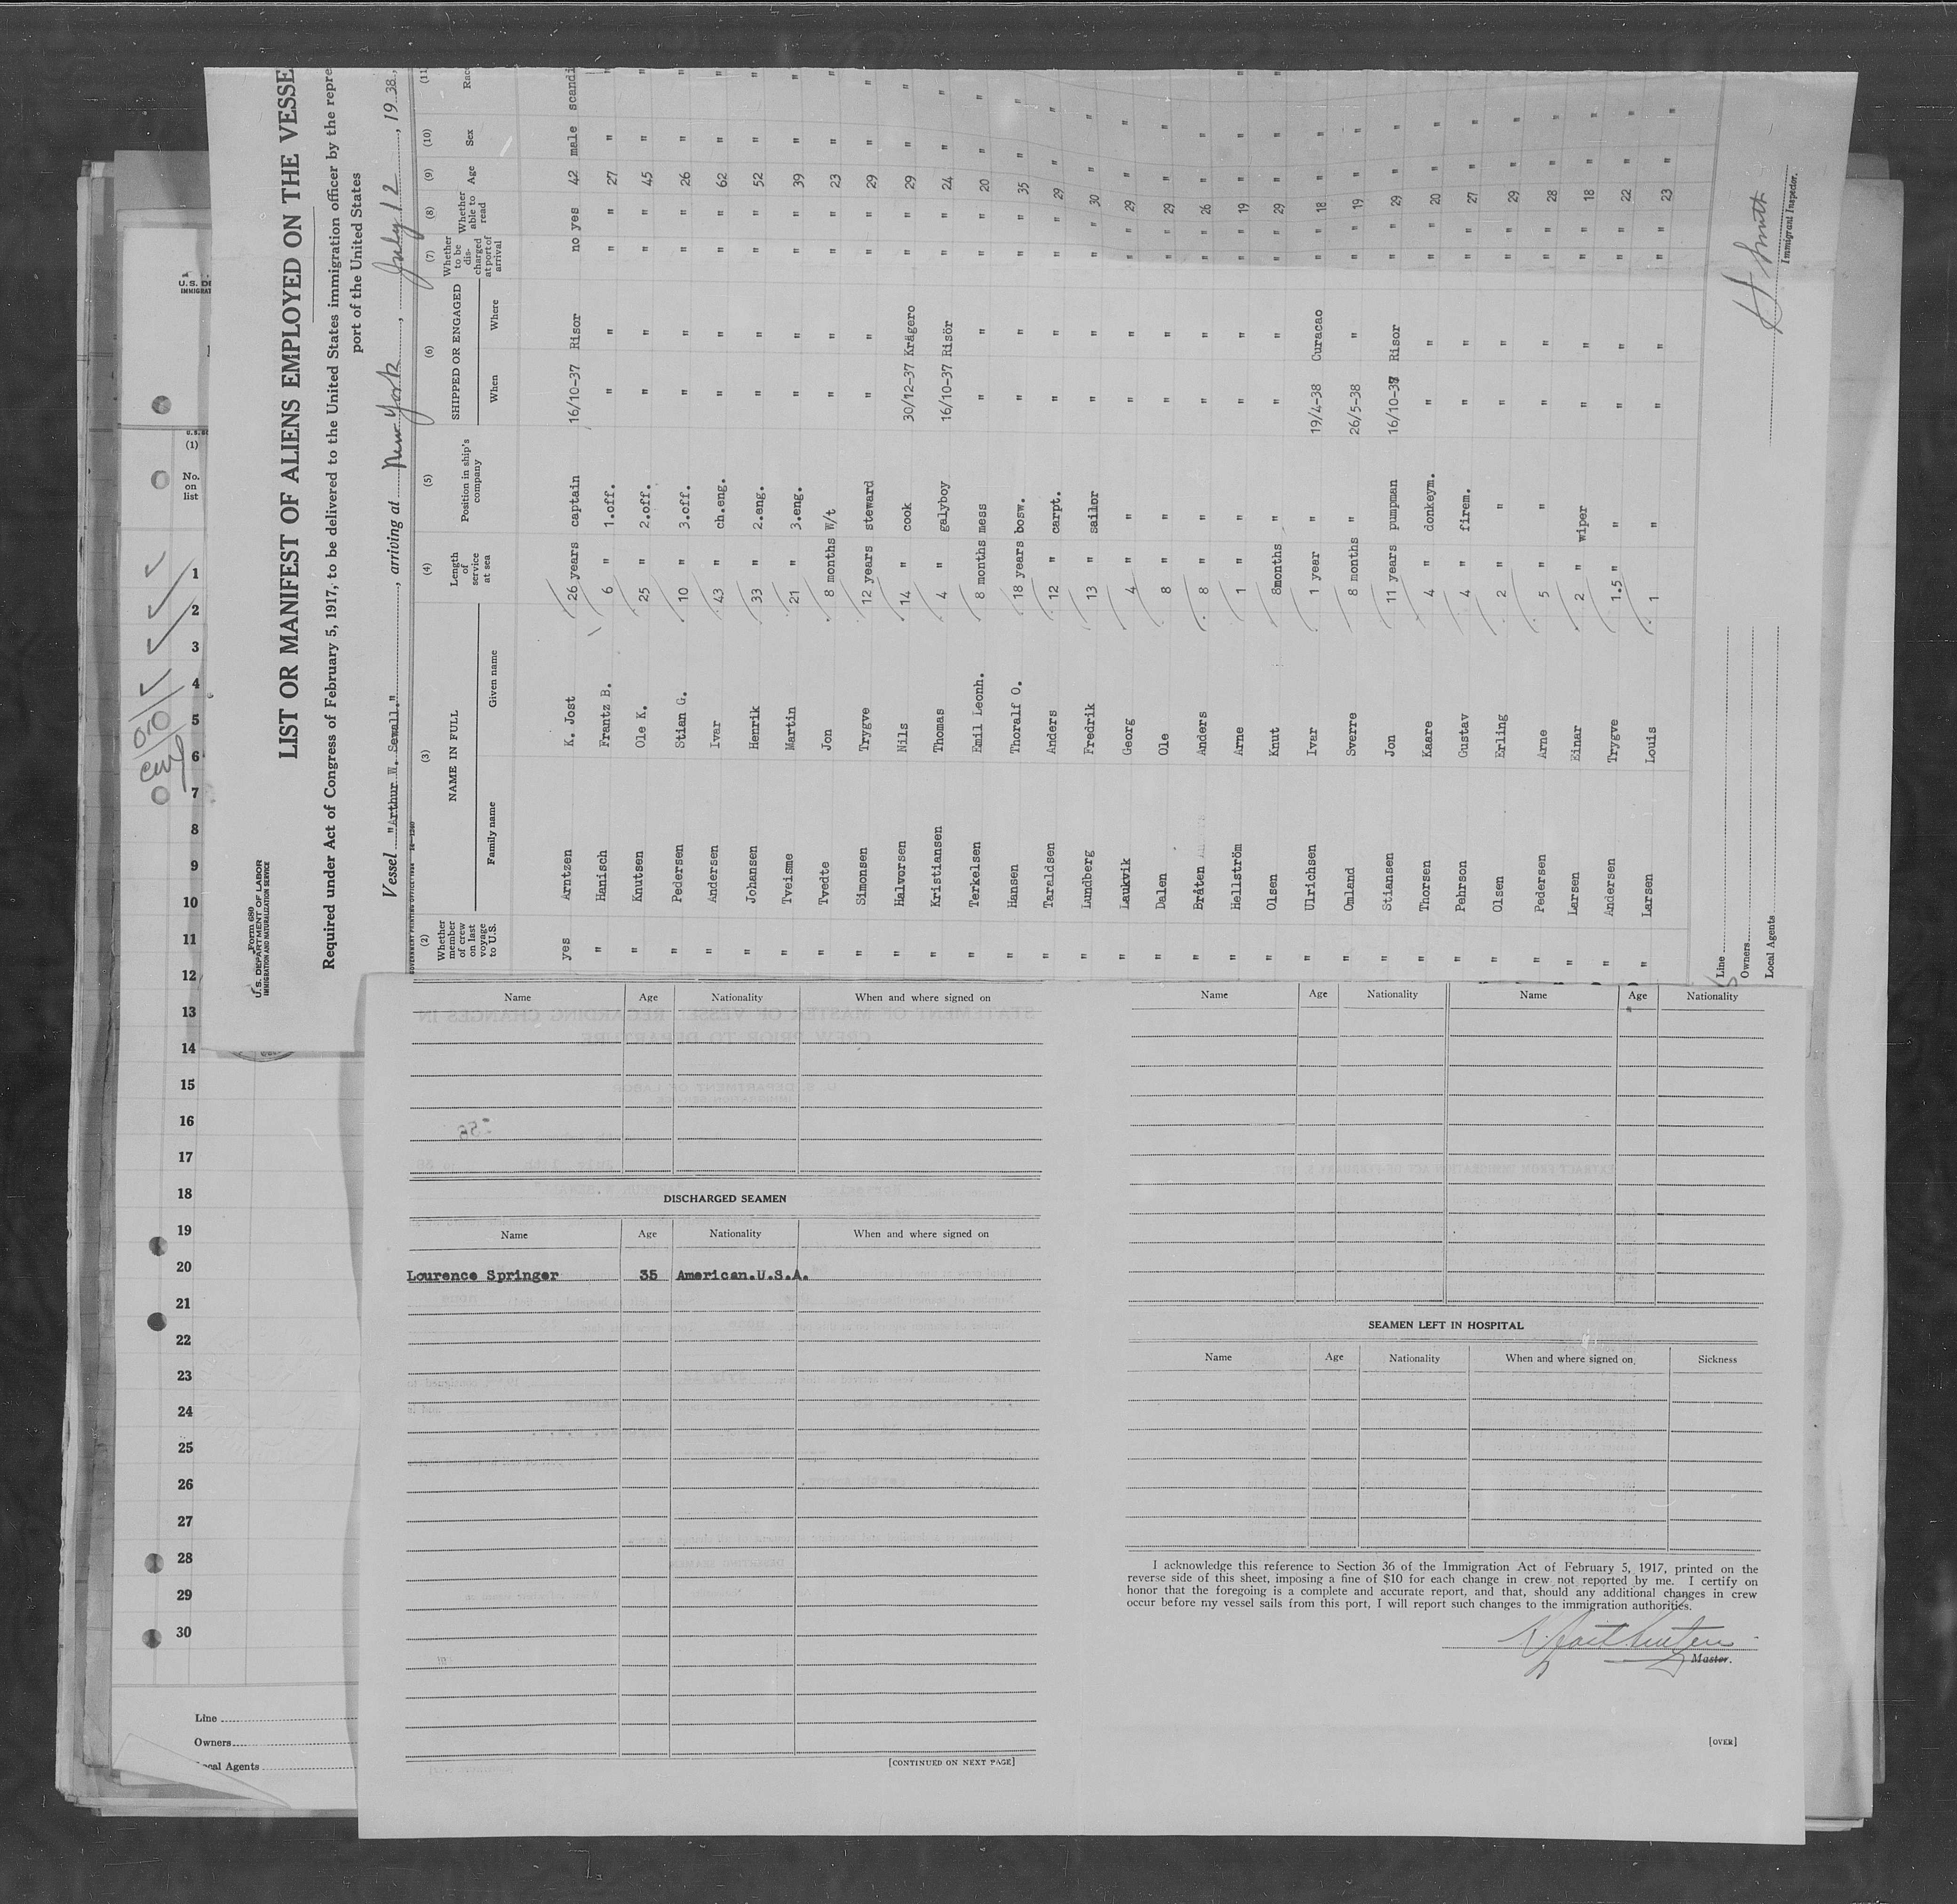 Form 680
U. S. DEPARTMENT OF LABOR
IMMIGRATION AND NATURALIZATION SERVICE
LIST OR MANIFEST OF ALIENS EMPLOYED ON THE VESSE
Required under Act of Congress of February 5, 1917, to be delivered to the United States immigration officer by the repre
port of the United States
Vessel "Arthur W. Sewall.", arriving at New York, July 12, 1938,
(2) (3) (4) (5) (6) (7) (8) (9) (10) (11
Whether member of crew on last voyage to U.S. NAME IN FULL Length of service at sea Position in ship's company SHIPPED OR ENGAGED Whether to be discharged at port of arrival Whether able to read Age Sex Race
Family name Given name When Where
yes Arntzen K. Jost 26 years captain 16/10-37 Risor no yes 42 male scandi
" Hanisch Frantz B. 6 " 1.off. " " " " 27 " "
" Knutsen Ole K. 25 " 2.off. " " " " 45 " "
" Pedersen Stian G. 10 " 3.off. " " " " 26 " "
" Andersen Ivar 43 " ch.eng. " " " " 62 " "
" Johansen Henrik 33 " 2.eng. " " " " 52 " "
" Tveisme Martin 21 " 3.eng. " " " " 39 " "
" Tvedte Jon 8 months W/t " " " " 23 " "
" Simonsen Trygve 12 years steward " " " " 29 " "
" Halvorsen Nils 14 " cook 30/12-37 Krägero " " 29 " "
" Kristiansen Thomas 4 " galyboy 16/10-37 Risör " " 24 " "
" Terkelsen Emil Leonh. 8 months mess " " " " 20 " "
" Hansen Thoralf O. 18 years bosw. " " " " 35 " "
" Taraldsen Anders 12 " carpt. " " " " 29 " "
" Lundberg Fredrik 13 " sailor " " " " 30 " "
" Laukvik Georg 4 " " " " " " 29 " "
" Dalen Ole 8 " " " " " " 29 " "
" Bråten Anders 8 " " " " " " 26 " "
" Hellström Arne 1 " " " " " " 19 " "
" Olsen Knut 8months " " " " " 29 " "
" Ulrichsen Ivar 1 year " 19/4-38 Curacao " " 18 " "
" Omland Sverre 8 months " 26/5-38 " " " 19 " "
" Stiansen Jon 11 years pumpman 16/10-37 Risor " " 29 " "
" Thorsen Kaare 4 " donkeym. " " " " 20 " "
" Pehrson Gustav 4 " firem. " " " " 27 " "
" Olsen Erling 2 " " " " " " 29 " "
" Pedersen Arne 5 " " " " " " 28 " "
" Larsen Einar 2 " wiper " " " " 18 " "
" Andersen Trygve 1.5 " " " " " " 22 " "
" Larsen Louis 1 " " " " " 23 " "
Line
Owners
Local Agents
H Smith
Immigrant Inspector.
U.S. DE
IMMIGRAT
(1)
No. on list
1
2
3
4
5
6
7
8
9
10
11
12
13
14
15
16
17
18
19
20
21
22
23
24
25
26
27
28
29
30
Line
Owners
cal Agents
Name Age Nationality When and where signed on
DISCHARGED SEAMEN
Name Age Nationality When and where signed on
Lourence Springer 35 American.U.S.A.
[CONTINUED ON NEXT PAGE]
Name Age Nationality Name Age Nationality
SEAMEN LEFT IN HOSPITAL
Name Age Nationality When and where signed on Sickness
I acknowledge this reference to Section 36 of the Immigration Act of February 5, 1917, printed on the
reverse side of this sheet, imposing a fine of $10 for each change in crew not reported by me. I certify on
honor that the foregoing is a complete and accurate report, and that, should any additional changes in crew
occur before my vessel sails from this port, I will report such changes to the immigration authorities.
Master.
[OVER]